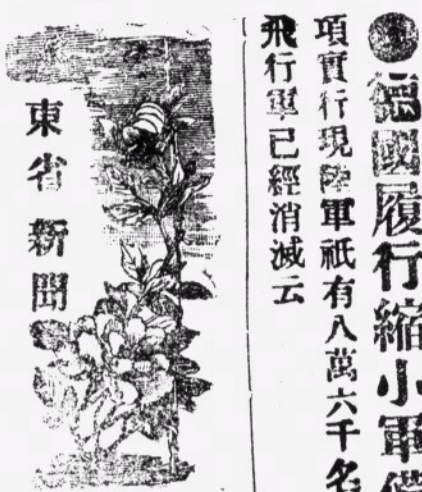 ●德國履行縮小軍備
項實行現陸軍祇有八萬六千名
飛行軍已經消滅云
東省新聞